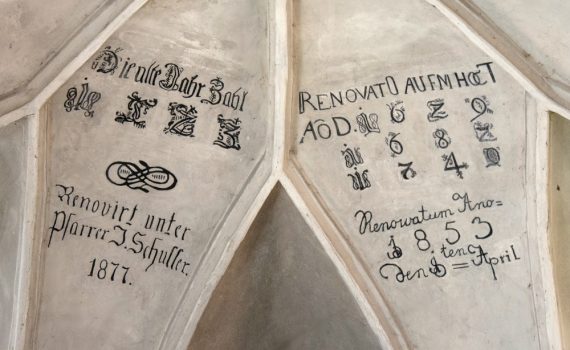 Die alte Jahr Zahl
Renovirt unter
Pfarrer J. Schuller.
1877.
RENOVATO AUFM HOCT
AOD. 1 6 2 9
1 6 8 2
1 7 4 0
Renowatum Ano=
1853
Den 8ten = April